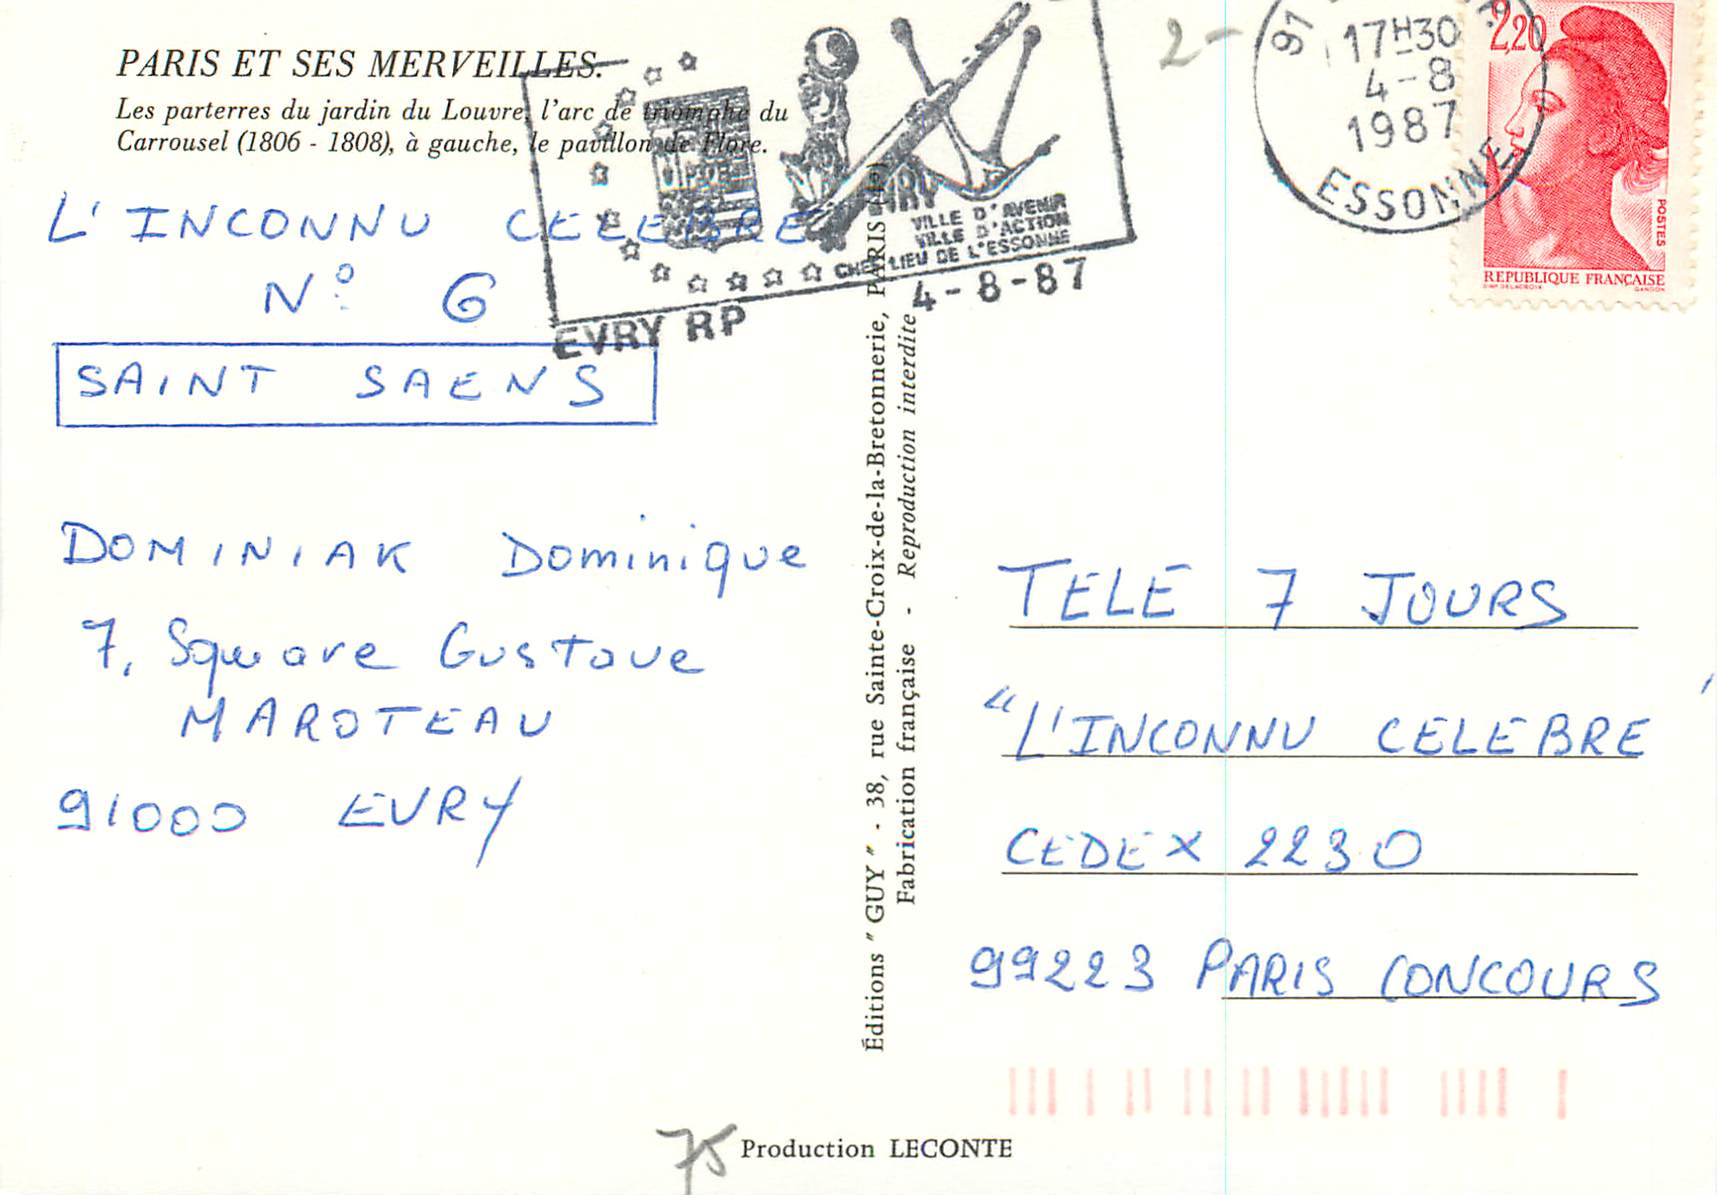 PARIS ET SES MERVEILLES.
Les parterres du jardin du Louvre, l'arc de triomphe du
Carrousel (1806 - 1808), à gauche, le pavillon de Flore.
L'INCONNU CELEBRE
N° 6
SAINT SAENS
DOMINIAK Dominique
7, Square Gustave
MAROTEAU
91000 EVRY
VILLE D'AVENIR
VILLE D'ACTION
CHEF LIEU DE L'ESSONNE
EVRY RP
4-8-87
2-
91
17H30
4-8
1987
ESSONNE
2,20
POSTES
REPUBLIQUE FRANÇAISE
D'AP. DELACROIX
GANDON
Éditions "GUY" - 38, rue Sainte-Croix-de-la-Bretonnerie, PARIS (4e)
Fabrication française - Reproduction interdite
TELE 7 JOURS
"L'INCONNU CELEBRE'
CEDEX 2230
99223 PARIS CONCOURS
75
Production LECONTE